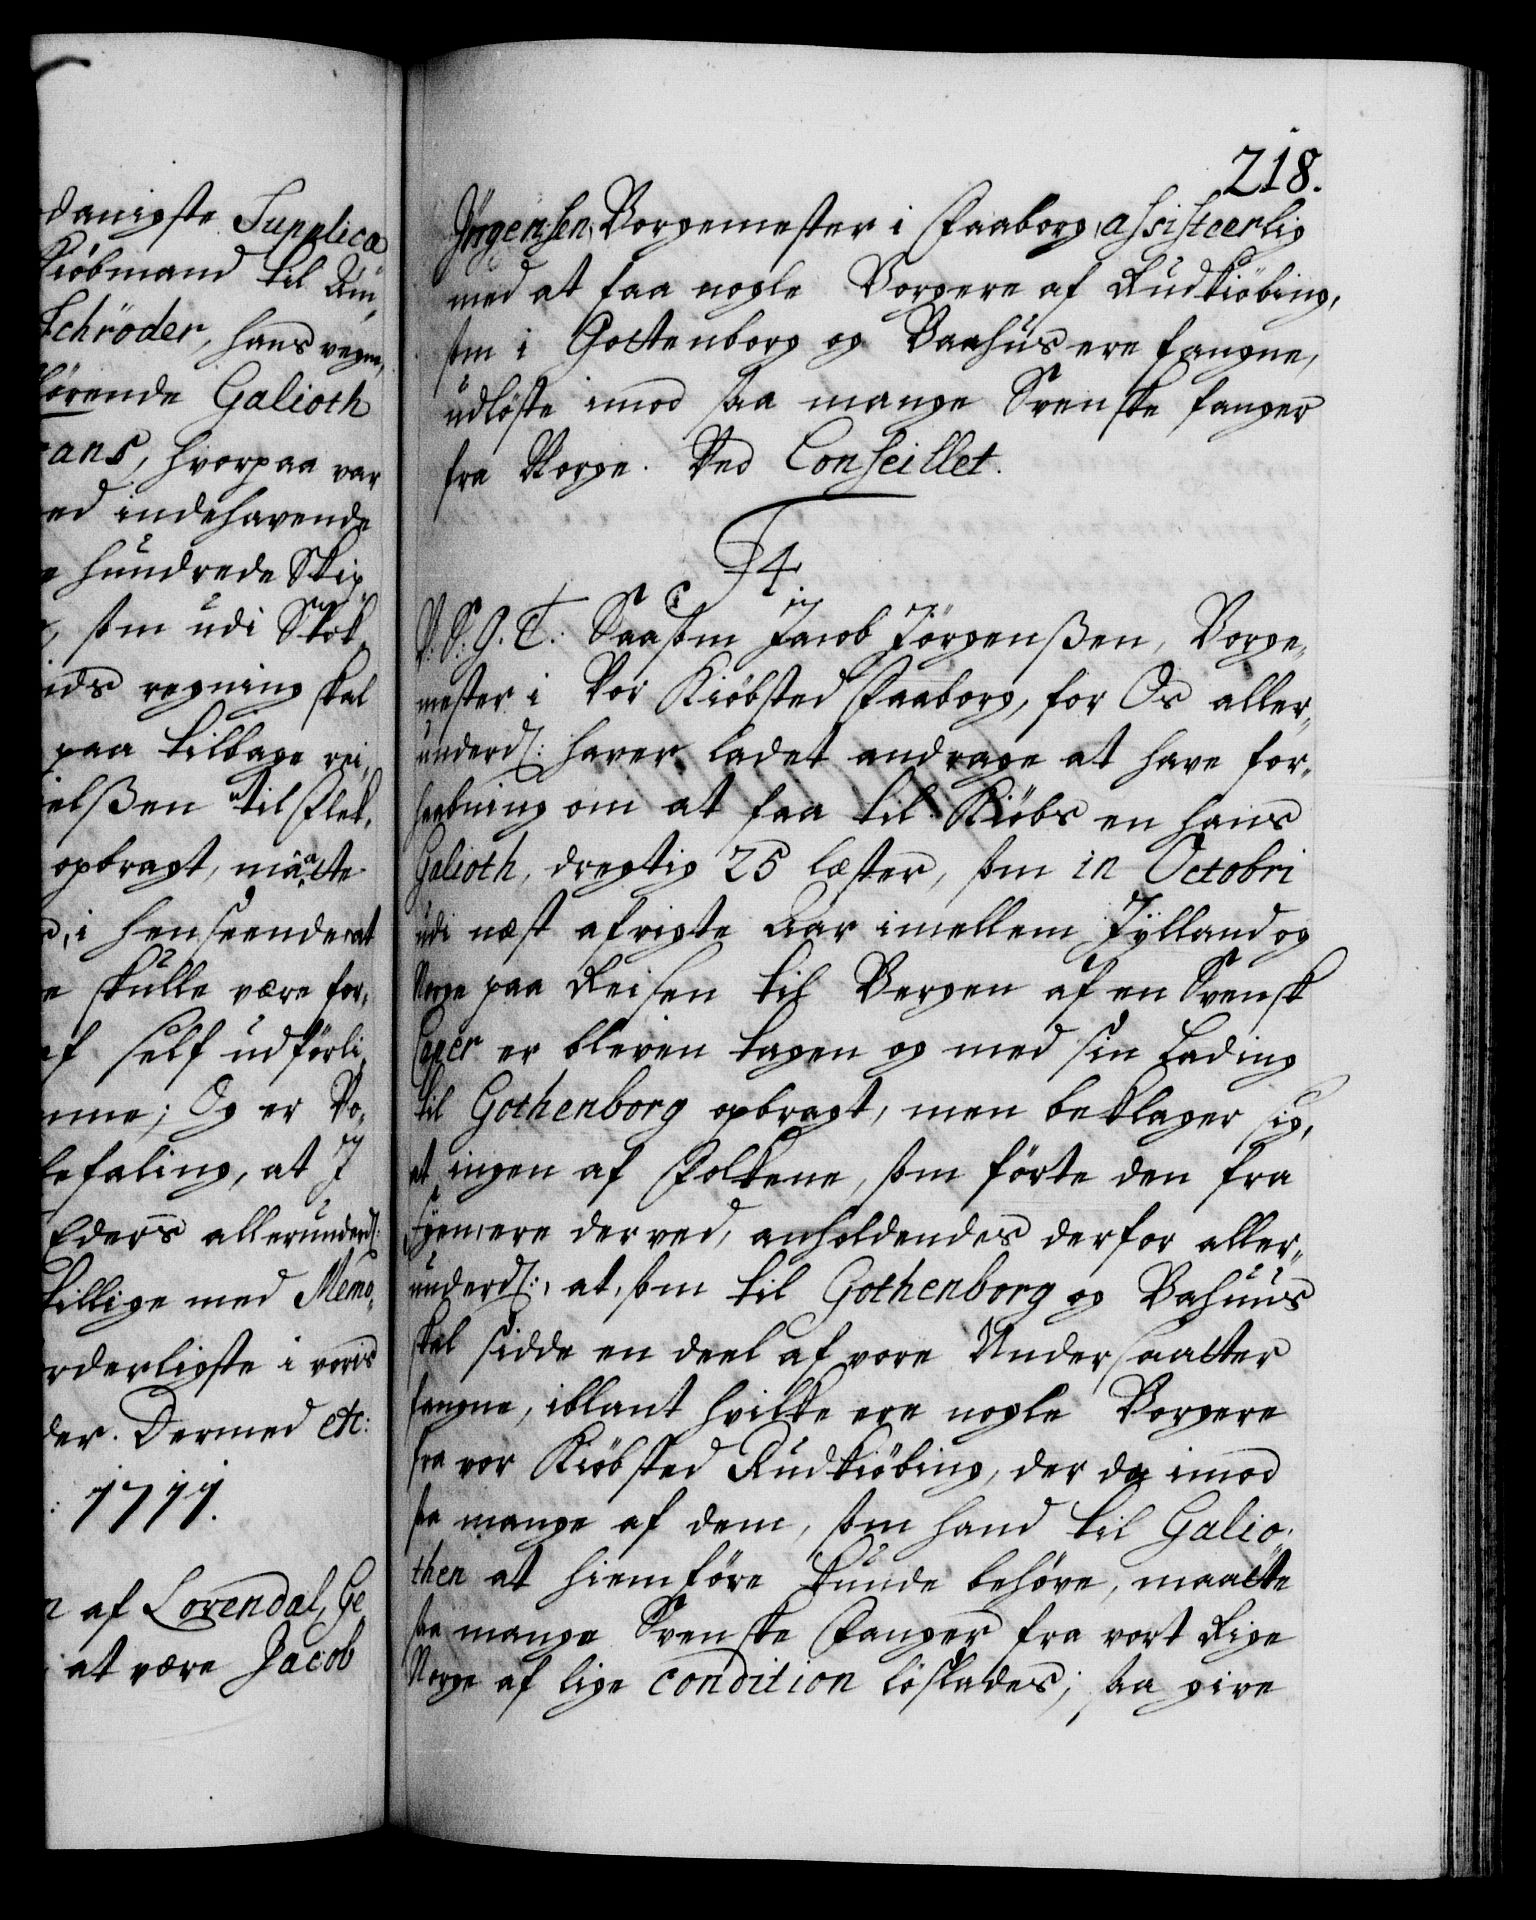 danigste Supplica
Kiöbmand til Am,
Schröder, hans vegne,
hörende Galioth
ans, hvorpaa var
ed indehavende
e hundrede Skip,
som udi Skok,
ids regning skal
paa tilbage rei,
elßen til Flek,
opbragt, maatte
, i henseende at
e skulle være for,
af self udförli,
nme; Og er Vo,
befaling, at J
Eders allerunderd:
tillige med Memo,
rderligste i vores
der. Dermed etc:
: 1711.
n af Lovendal, Ge
i at være Jacob
218.
Jörgensen, Borgemester i Faaborg, assisteerlig
med at faa nogle Borgere af Rudkiöbing,
som i Gottenborg og Baahus ere fangne,
udlöste imod saa mange Svenske fanger
fra Norge. Ved Conseillet.
F4.
V: S: G. T: Saasom Jacob Jörgenßen, Borge,,
mester i Vor Kiöbsted Faaborg, for Os aller,,
underd: haver ladet andrage at have for,,
haabning om at faa til Kiöbs en hans
Galioth, dregtig 25 læster, som in Octobri
udi næst afvigte Aar imellem Jylland og
Norge paa Reisen til Bergen af en Svensk
Caper er bleven tagen og med sin Lading
til Gothenborg opbragt, men beklager sig,
at ingen af Folkene, som förte den fra
Fyen, ere derved, anholdendes derfor aller,,
underd:, at, som til Gothenborg og Bahuus
skal sidde en deel af vore Undersaatter
fangne, iblant hvilke ere nogle Borgere
fra vor Kiöbsted Rudkiöbing, der da imod
saa mange af dem, som hand til Galio,
then at hiemföre kunde behöve, maatte
saa mange Svenske Fanger fra vort Rige
Norge af lige condition löslades; saa give